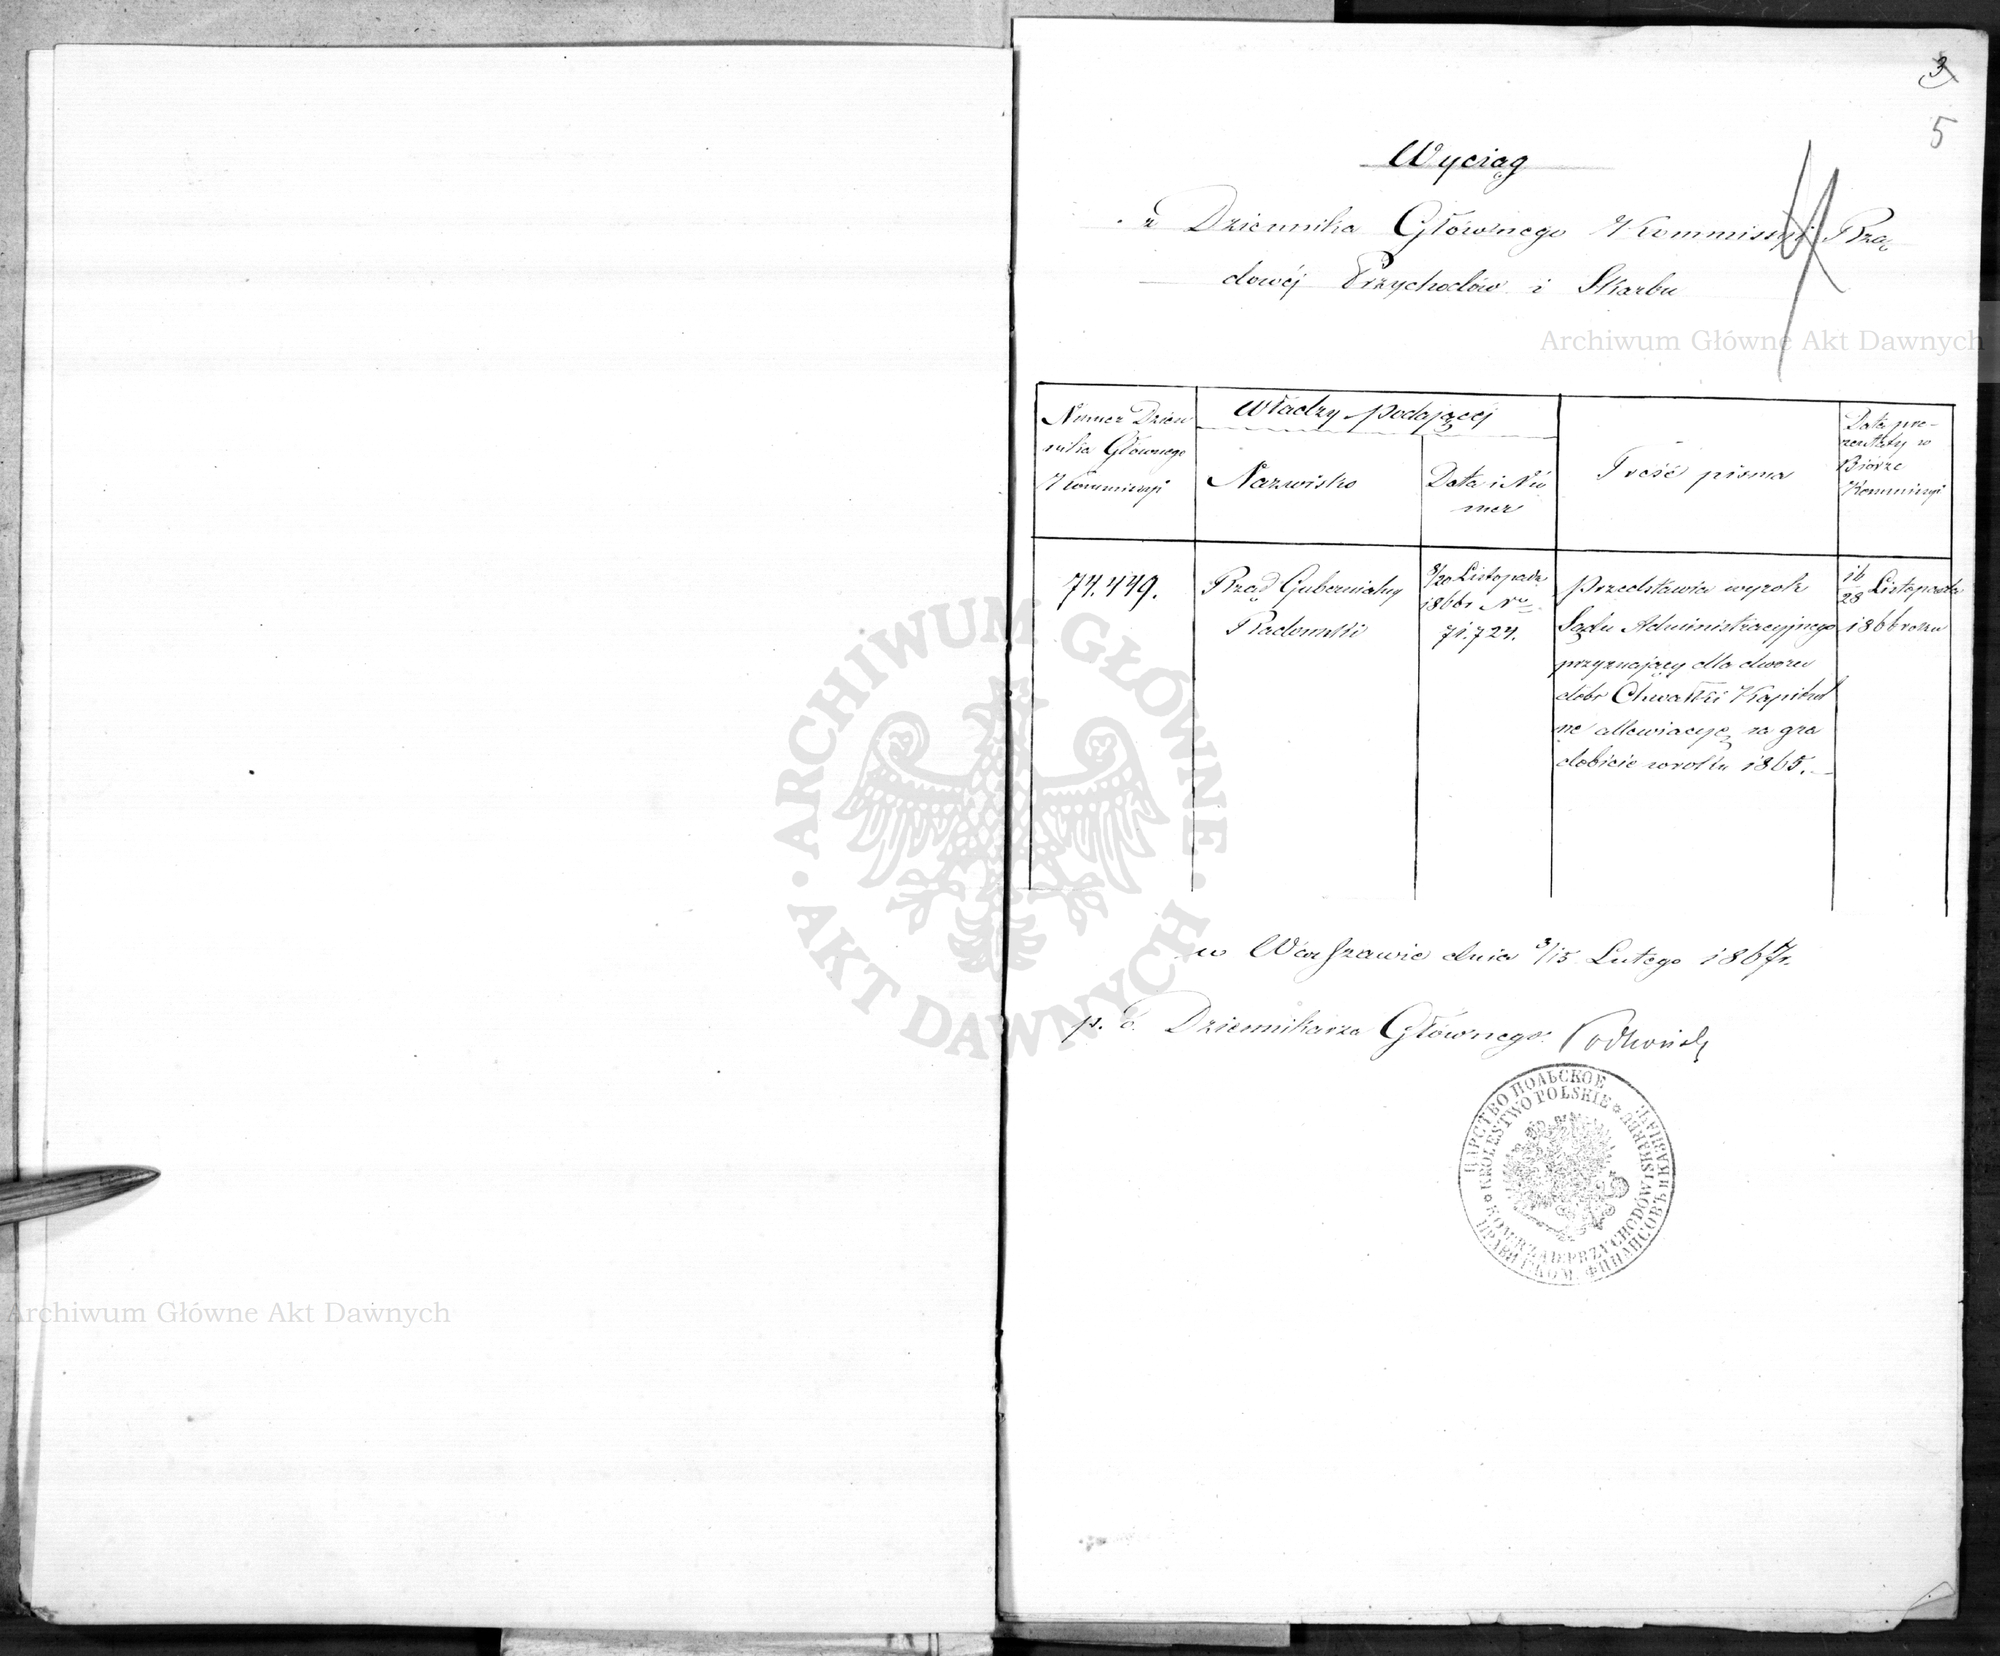 3
5
Wyciąg
z Dziennika Głównego Kommissyi Rzą
dowéj Przychodów i Skarbu
Archiwum Główne Akt Dawnych
Numer Dzien
nika Głównego
Kommissyi
Władzy podającéj
Nazwisko
Data i Nu
mer
Treść pisma
Data pre-
zentaty w
Biórze
Kommissyi
74.449.
Rząd Gubernialny
Radomski
8/20 Listopada
1866r No
71.724.
Przedstawia wyrok
Sądu Administracyjnego
przyznający dla dworu
dóbr Chwałki Kapitul
ne allewiacyę za gra
dobicie w roku 1865.
16/28 Listopada
1866 roku
w Warszawie dnia 3/15 Lutego 1867r.
p. o. Dziennikarza Głównego
ЦАРСТВО ПОЛЬСКОЕ
KRÓLESTWO POLSKIE
KOM: RZĄD: PRZYCHODÓW I SKARBU
ПРАВИТ. КОМ. ФИНАНСОВЪ И КАЗНАЧ.
ARCHIWUM GŁÓWNE
AKT DAWNYCH
Archiwum Główne Akt Dawnych